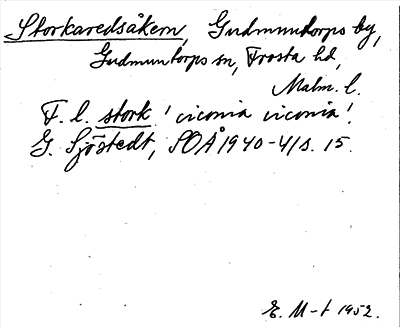 Storkaredsåkern, Gudmuntorps by,
Gudmuntorps sn, Frosta hd,
Malm. l.
F. l. stork 'ciconia ciconia'.
G. Sjöstedt, SOÅ 1940-41 s. 15.
E. M-t 1952.